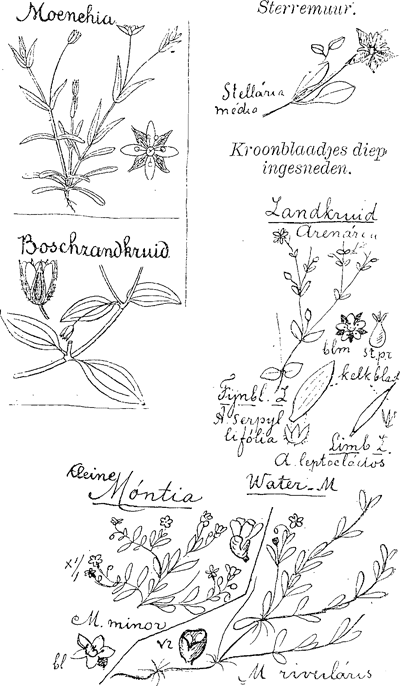 Moenchia
Sterremuur.
Stellária
média
Kroonblaadjes diep
ingesneden.
Boschzandkruid
Zandkruid
Arenária
blm stpr
kelkblad
Fynbl. Z
A. serpyl
lifólia
Limb Z.
A. leptocládos
Kleine
Móntia
Water-M
x 1/1
M. minor
bl
vr
M rivuláris